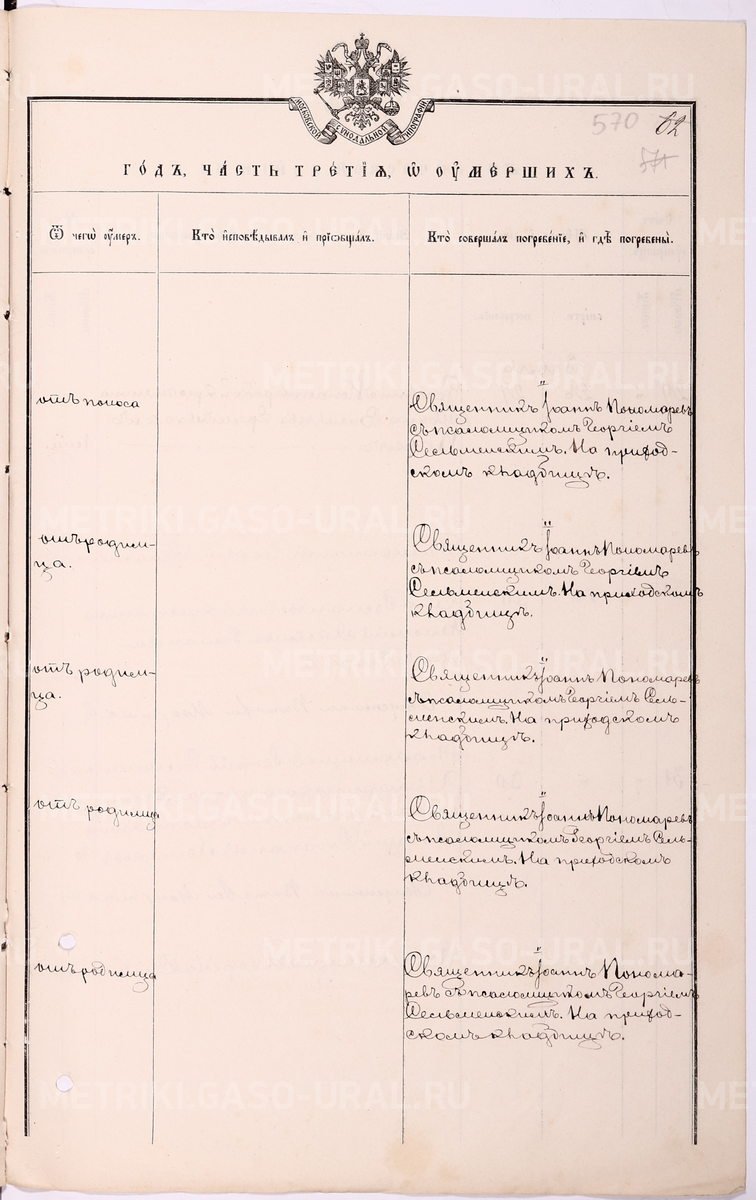 МОСКОВСКОЙ СѴНОДАЛЬНОЙ ТИПОГРАФІИ
570 62
571
ГО́ДЪ, ЧА́СТЬ ТРЕ́ТІѦ, Ѽ ОУ҆МЕ́РШИХЪ.
Ѿ чегѡ̀ оу҆́меръ.
Кто̀ и҆сповѣ́дывалъ и҆ прїѡбща́лъ.
Кто̀ соверша́лъ погребе́нїе, и҆ гдѣ̀ погребены̀.
отъ поноса
Священникъ Іоаннъ Пономаревъ
съ псаломщикомъ Георгіемъ
Сельменскимъ. На приход-
скомъ кладбищѣ.
отъ родим-
ца.
Священникъ Іоаннъ Пономаревъ
съ псаломщикомъ Георгіемъ
Сельменскимъ. На приходскомъ
кладбищѣ.
отъ родим-
ца.
Священникъ Іоаннъ Пономаревъ
съ псаломщикомъ Георгіемъ Сель-
менскимъ. На приходскомъ
кладбищѣ.
отъ родимца
Священникъ Іоаннъ Пономаревъ
съ псаломщикомъ Георгіемъ Сель-
менскимъ. На приходскомъ
кладбищѣ.
отъ родимца
Священникъ Іоаннъ Понома-
ревъ съ псаломщикомъ Георгіемъ
Сельменскимъ. На приход-
скомъ кладбищѣ.
METRIKI.GASO-URAL.RU